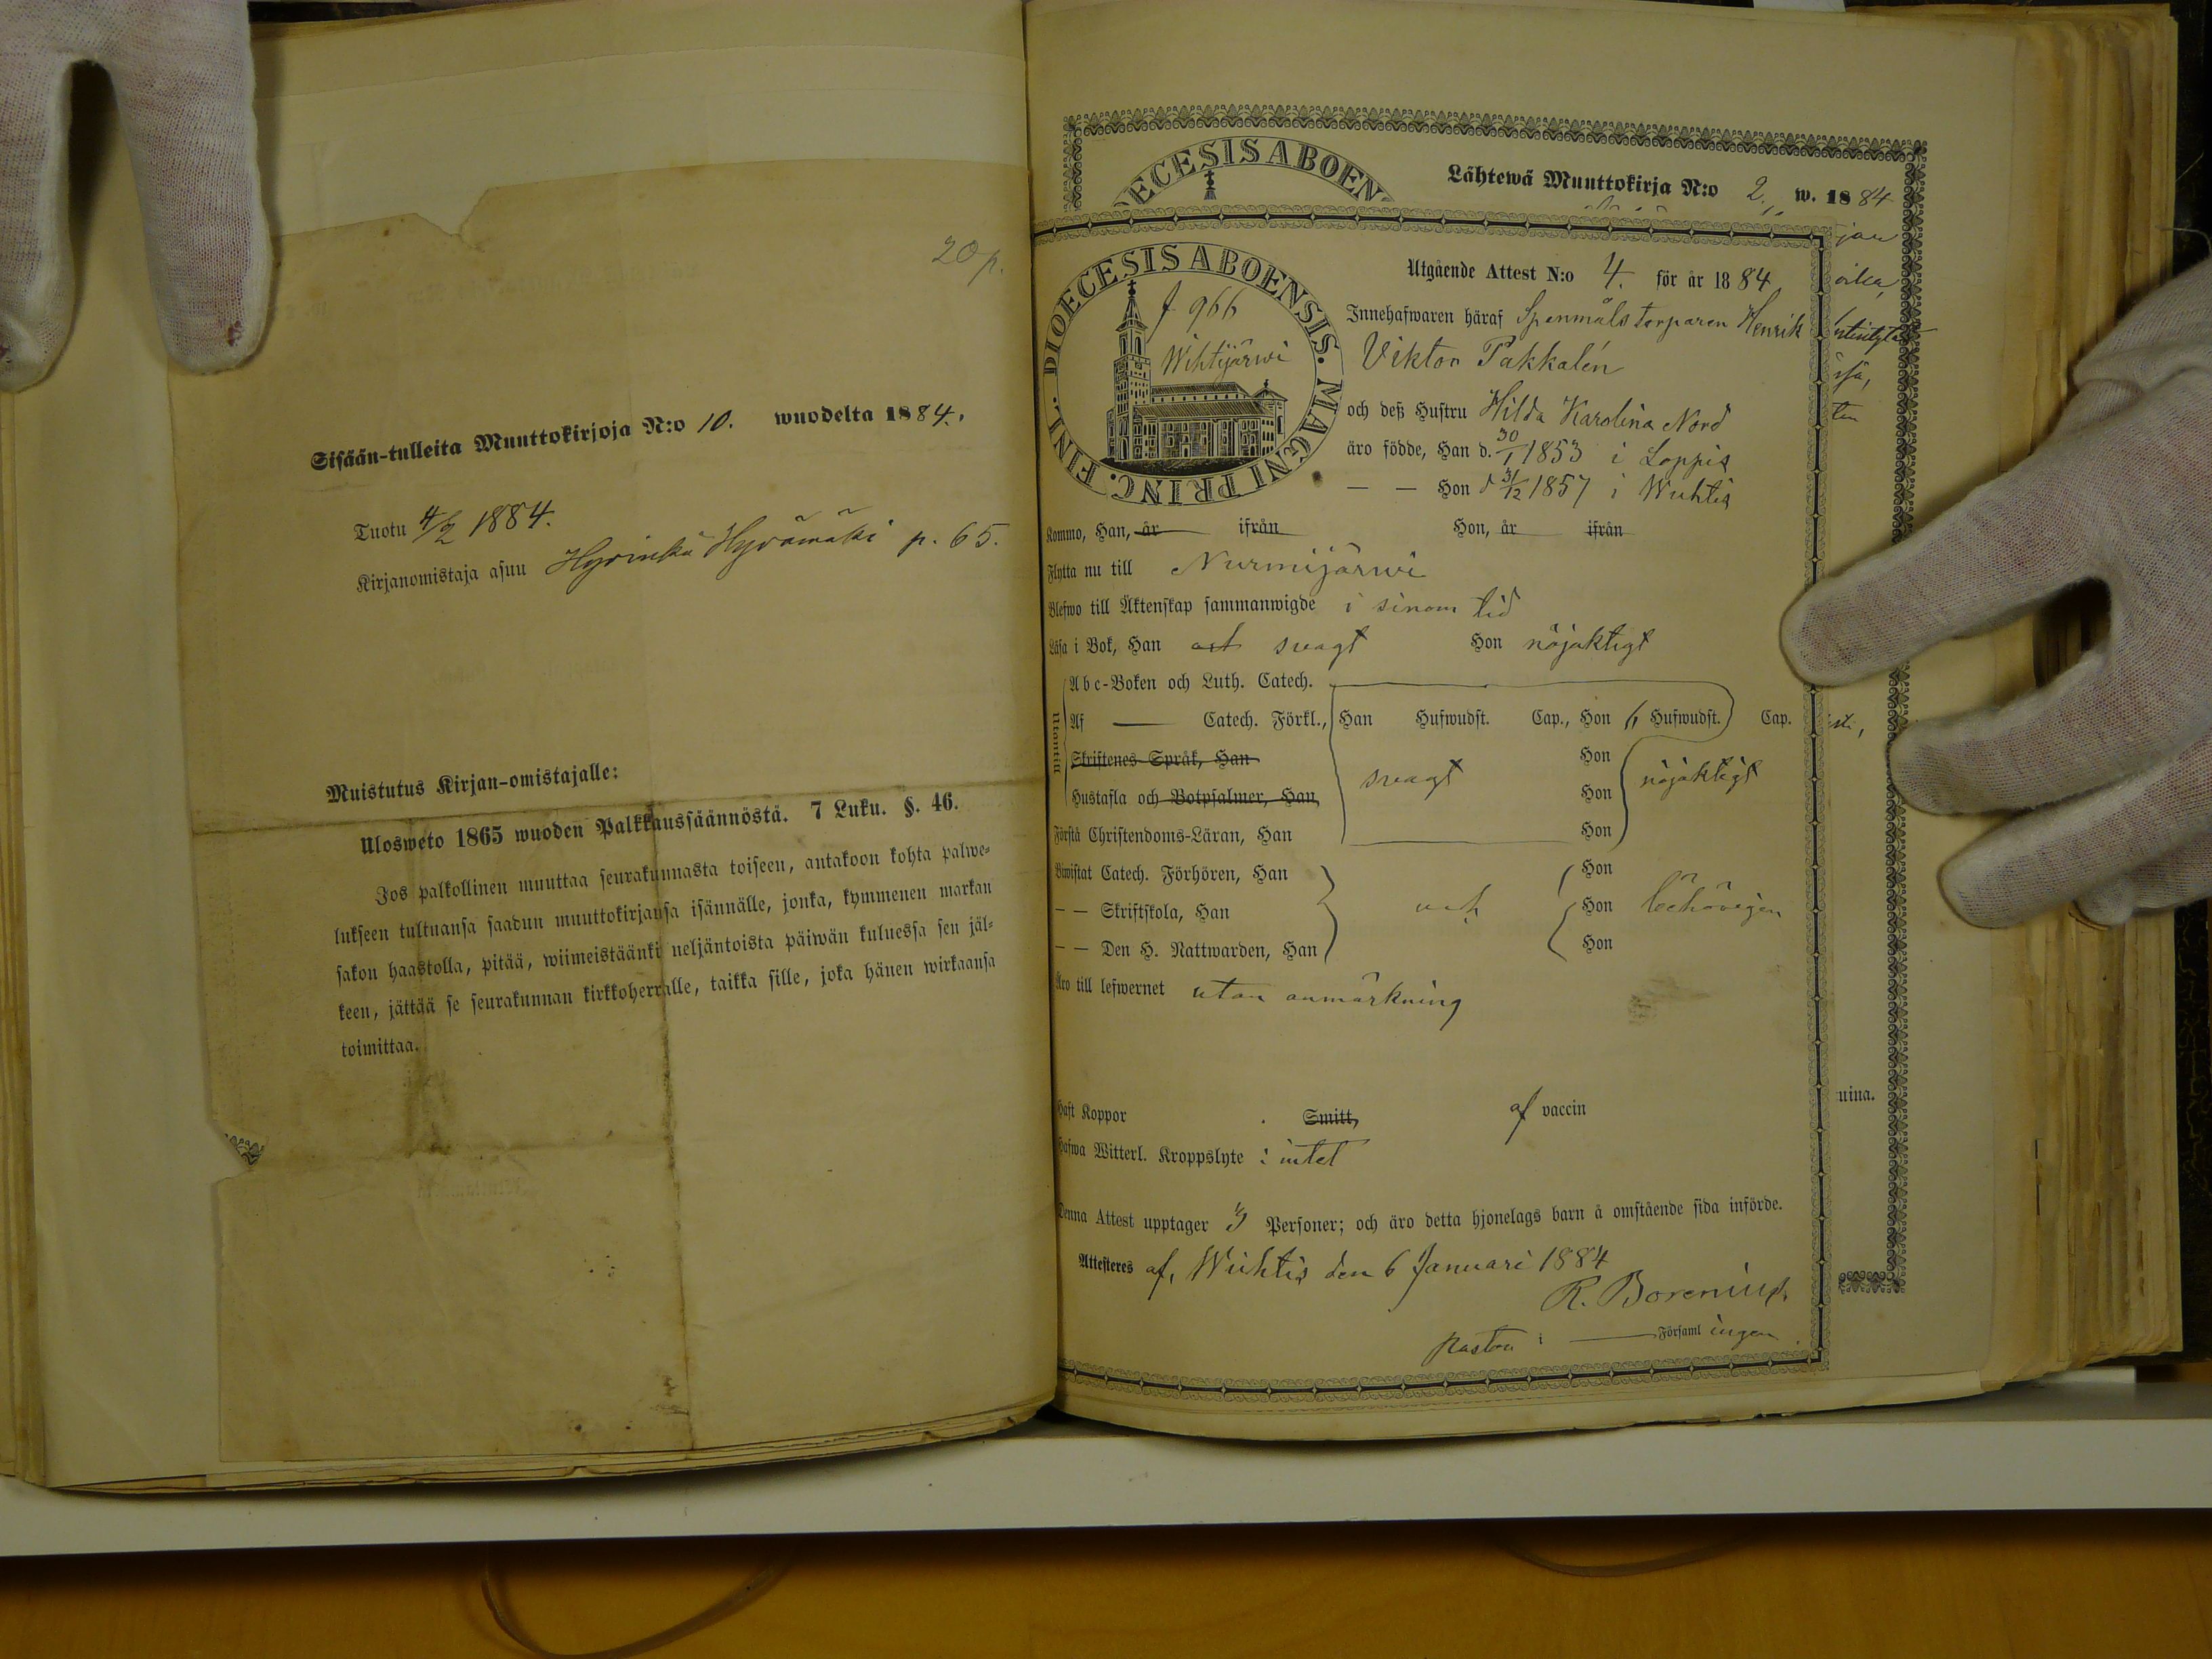 20 p.
Sisään-tulleita Muuttokirjoja N:o 10. wuodelta 1884.
Tuotu 4/2 1884.
Kirjanomistaja asuu Hyvinkä Hyvämäki p. 65.
Muistutus Kirjan-omistajalle:
Ulosweto 1865 wuoden Palkkaussäännöstä. 7 Luku. §. 46.
Jos palkollinen muuttaa seurakunnasta toiseen, antakoon kohta palwe-
lukseen tultuansa saadun muuttokirjansa isännälle, jonka, kymmenen markan
sakon haastolla, pitää, wiimeistäänki neljäntoista päiwän kuluessa sen jäl-
keen, jättää se seurakunnan kirkkoherralle, taikka sille, joka hänen wirkaansa
toimittaa.
DIOECESIS ABOEN
Lähtewä Muuttokirja N:o 2. w. 1884
DIOECESIS ABOENSIS. MAGNI PRINC. FINL.
f 966
Wihtijärwi
Utgående Attest N:o 4. för år 1884
Innehafwaren häraf Torparen Henrik
Viktor Pakkalén
och deß Hustru Hilda Karolina Nord
äro födde, Han d. 30/1 1853 i Loppis
— — Hon d 31/12 1857 i Wichtis
Kommo, Han, år ifrån Hon, år ifrån
Flytta nu till Nurmijärwi
Blefwo till Äktenskap sammanwigde i sinom tid
Läsa i Bok, Han svagt Hon nöjaktigt
Utantill
Abc-Boken och Luth. Catech.
Af — Catech. Förkl., Han Hufwudst. Cap., Hon Hufwudst. Cap.
Skriftenes Språk, Han Hon
svagt nöjaktigt
Hustafla och Botpsalmer, Han Hon
Första Christendoms-Läran, Han Hon
Biwistat Catech. Förhören, Han Hon
— — Skriftskola, Han och Hon behörigen
— — Den H. Nattwarden, Han Hon
Äro till lefwernet utan anmärkning
Haft Koppor Smitt, af vaccin
Hafwa Witterl. Kroppslyte : intet
Denna Attest upptager 3 Personer; och äro detta hjonelags barn å omstående sida införde.
Attesteres af, Wichtis den 6 Januari 1884
R. Borenius.
Pastor i — Församl ingen